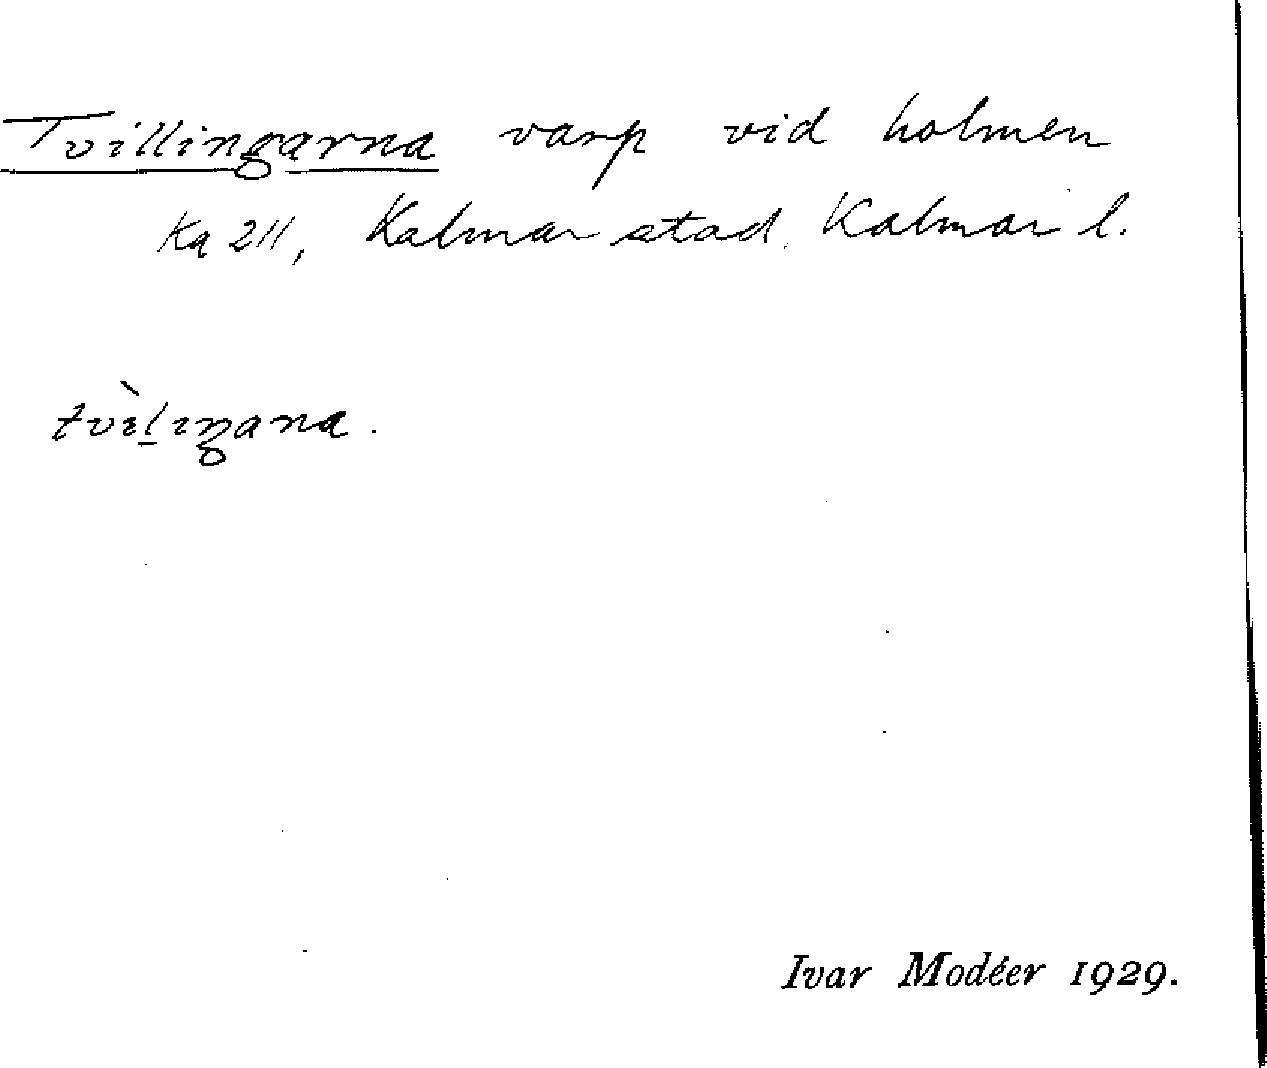 Tvillingarna varp vid holmen
Ka 211, Kalmar stad. Kalmar l.
tvìl̲ıŋana.
Ivar Modéer 1929.